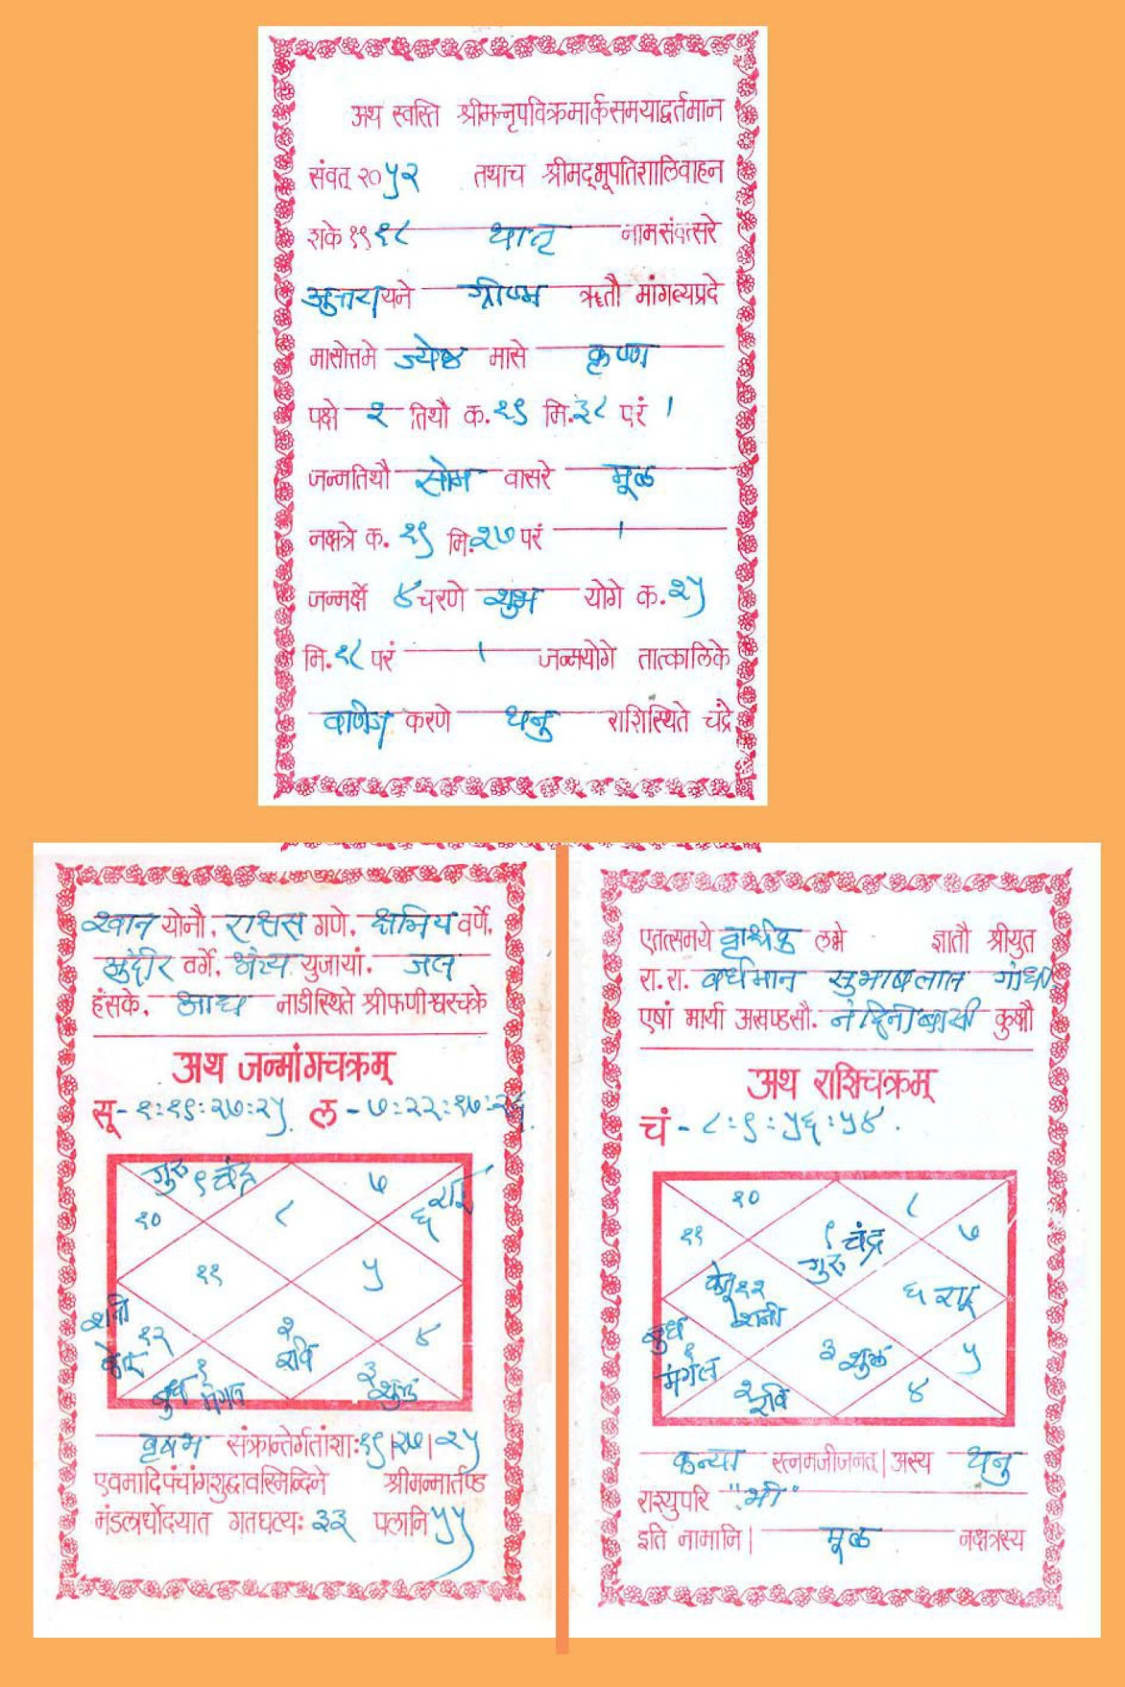 अथ स्वस्ति श्रीमन्नृपविक्रमार्कसमयाद्वर्तमान
संवत् २०५२ तथाच श्रीमद्भूपतिशालिवाहन
शके १९१८ धातृ नामसंवत्सरे
उत्तरायने ग्रीष्म ऋतौ मांगल्यप्रदे
मासोत्तमे ज्येष्ठ मासे कृष्ण
पक्षे २ तिथौ क. १९ मि. ३८ परं ।
जन्मतिथौ सोम वासरे मूळ
नक्षत्रे क. १९ मि. २७ परं ।
जन्मर्क्षे ४ चरणे शुभ योगे क. २५
मि. १८ परं । जन्मयोगे तात्कालिके
वाणिज करणे धनु राशिस्थिते चंद्रे
श्वान योनौ, राक्षस गणे, क्षत्रिय वर्णे,
वर्गे, युजायां, जल
हंसके, आद्य नाडीस्थिते श्रीफणीश्वरचक्रे
अथ जन्मांगचक्रम्
सू - १ : १९ : २७ : २५ ल - ७ : २२ : १७ : २६
गुरु ९ चंद्र
७
६ राहू
१०
८
११
५
शनी १२ केतू
२ रवि
४
१ बुध मंगल
३ शुक्र
वृषभ संक्रान्तेर्गतांशाः १९।२७।२५
एवमादिपंचांगशुद्धावस्मिन्दिने श्रीमन्मार्तण्ड
मंडलार्धोदयात गतघट्यः ३३ पलानि ५५
एतत्समये वृश्चिक लग्ने ज्ञातौ श्रीयुत
रा.रा. वर्धमान सुभाषलाल गांधी
एषां भार्या अखण्डसौ. कुक्षौ
अथ राशिचक्रम्
चं - ८ : ९ : ५६ : ५४ .
१०
८
११
९ चंद्र गुरु
७
केतू १२ शनी
६ राहू
बुध १ मंगल
३ शुक्र
५
२ रवि
४
कन्या रत्नमजीजनत्। अस्य धनु
राश्युपरि "भी"
इति नामानि। मूळ नक्षत्रस्य